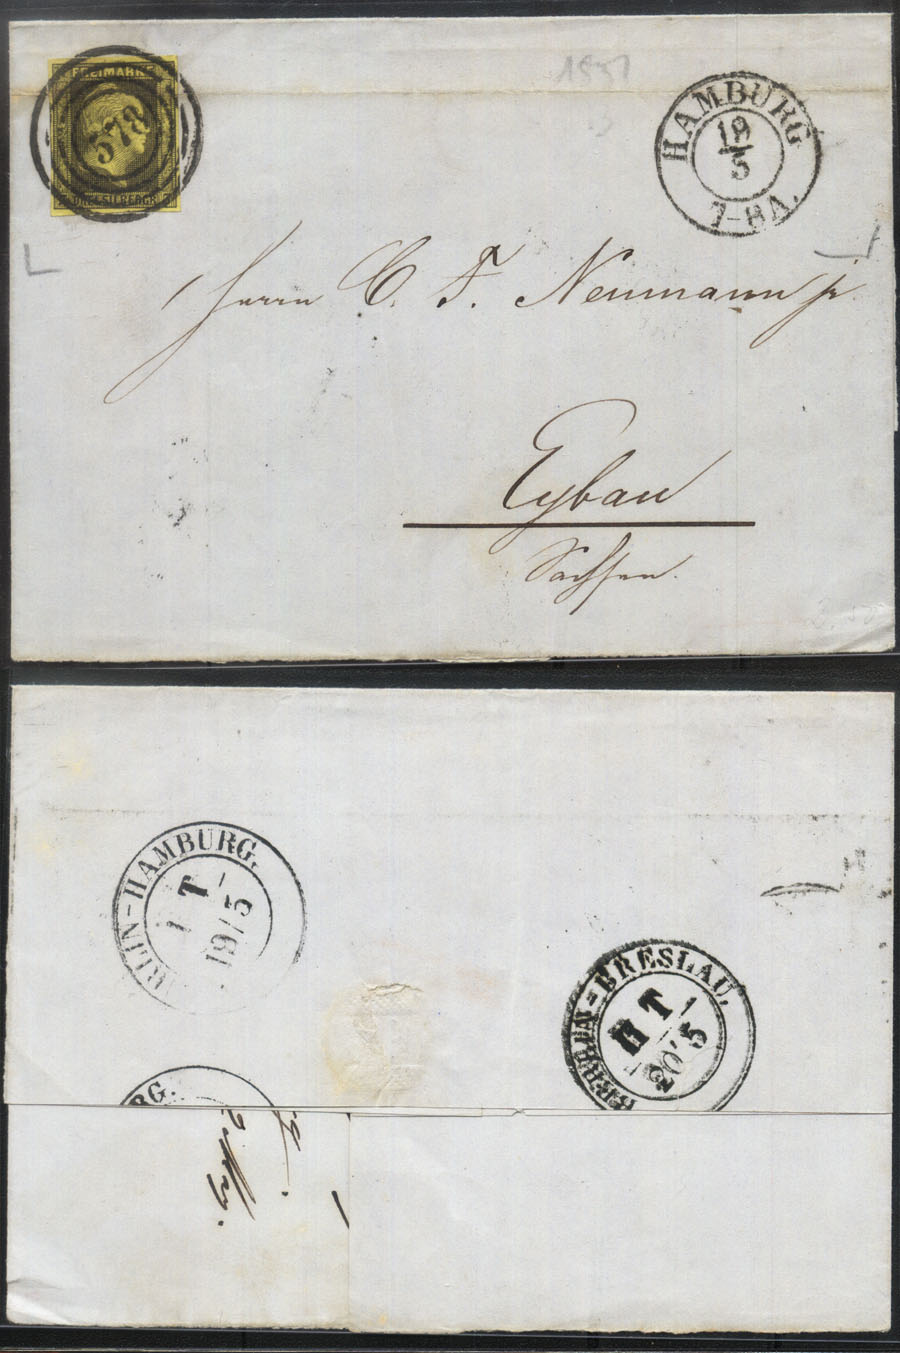 FREIMARKE
573
DREI SILBERGR.
1851
HAMBURG
19
5
7-8A.
Herrn C. F. Neumann jr
Eybau
Sachsen.
RLIN-HAMBURG.
I T
19/5
BERLIN-BRESLAU.
II T
20 5
RG.